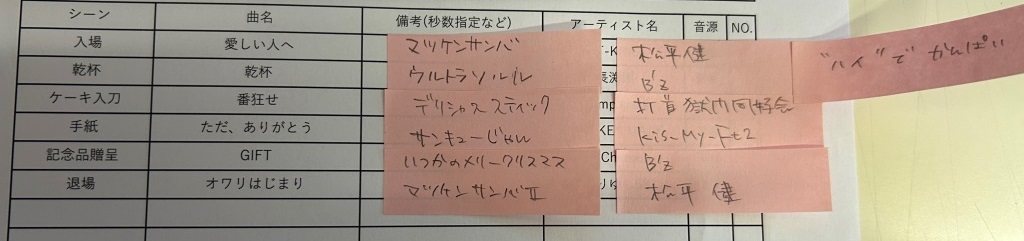 シーン 曲名 備考(秒数指定など) アーティスト名 音源 NO.
入場 愛しい人へ マツケンサンバ 松平健
乾杯 乾杯 ウルトラソルル B'z "ハイ"で かんぱい
ケーキ入刀 番狂せ デリシャススティック 打首獄門同好会
手紙 ただ、ありがとう サンキューじゃん Kis-My-Ft2
記念品贈呈 GIFT いつかのメリークリスマス B'z
退場 オワリはじまり マツケンサンバⅡ 松平 健